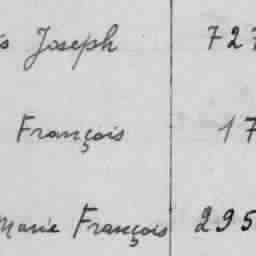 Joseph 727
François 17
Marie François 295